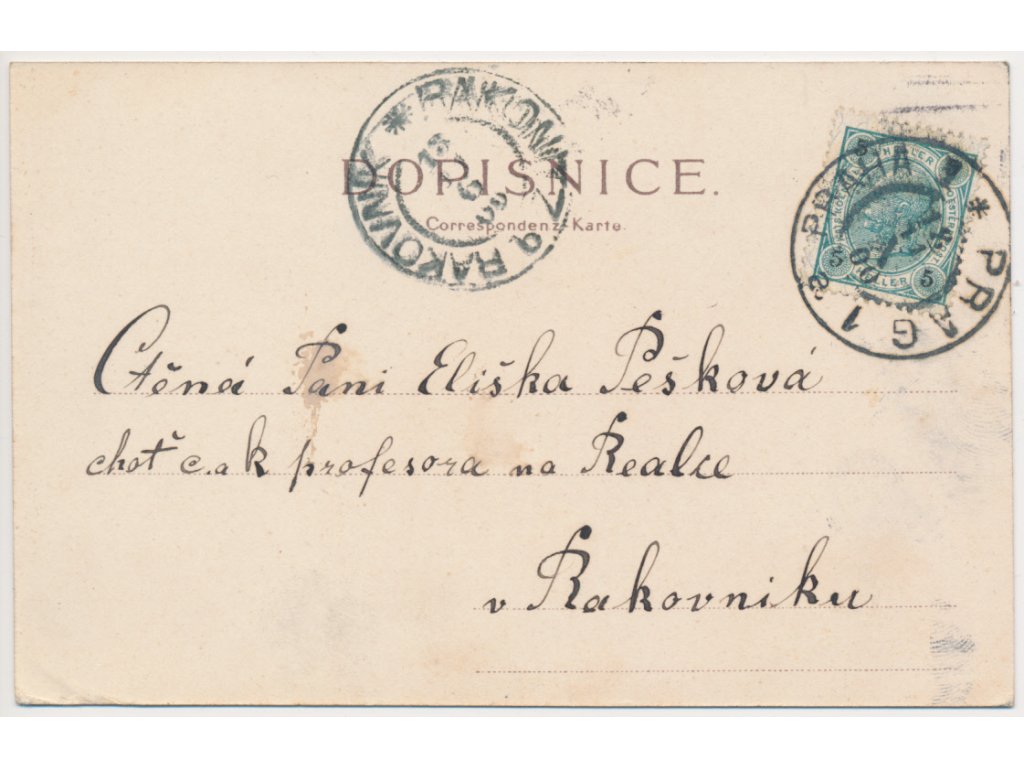 DOPISNICE.
Correspondenz-Karte.
RAKONITZ * RAKOVNÍK
PRAG 1 * PRAHA 1
5 HELLER 5
Ctěná Paní Eliška Pešková
choť c. a k profesora na Realce
v Rakovniku